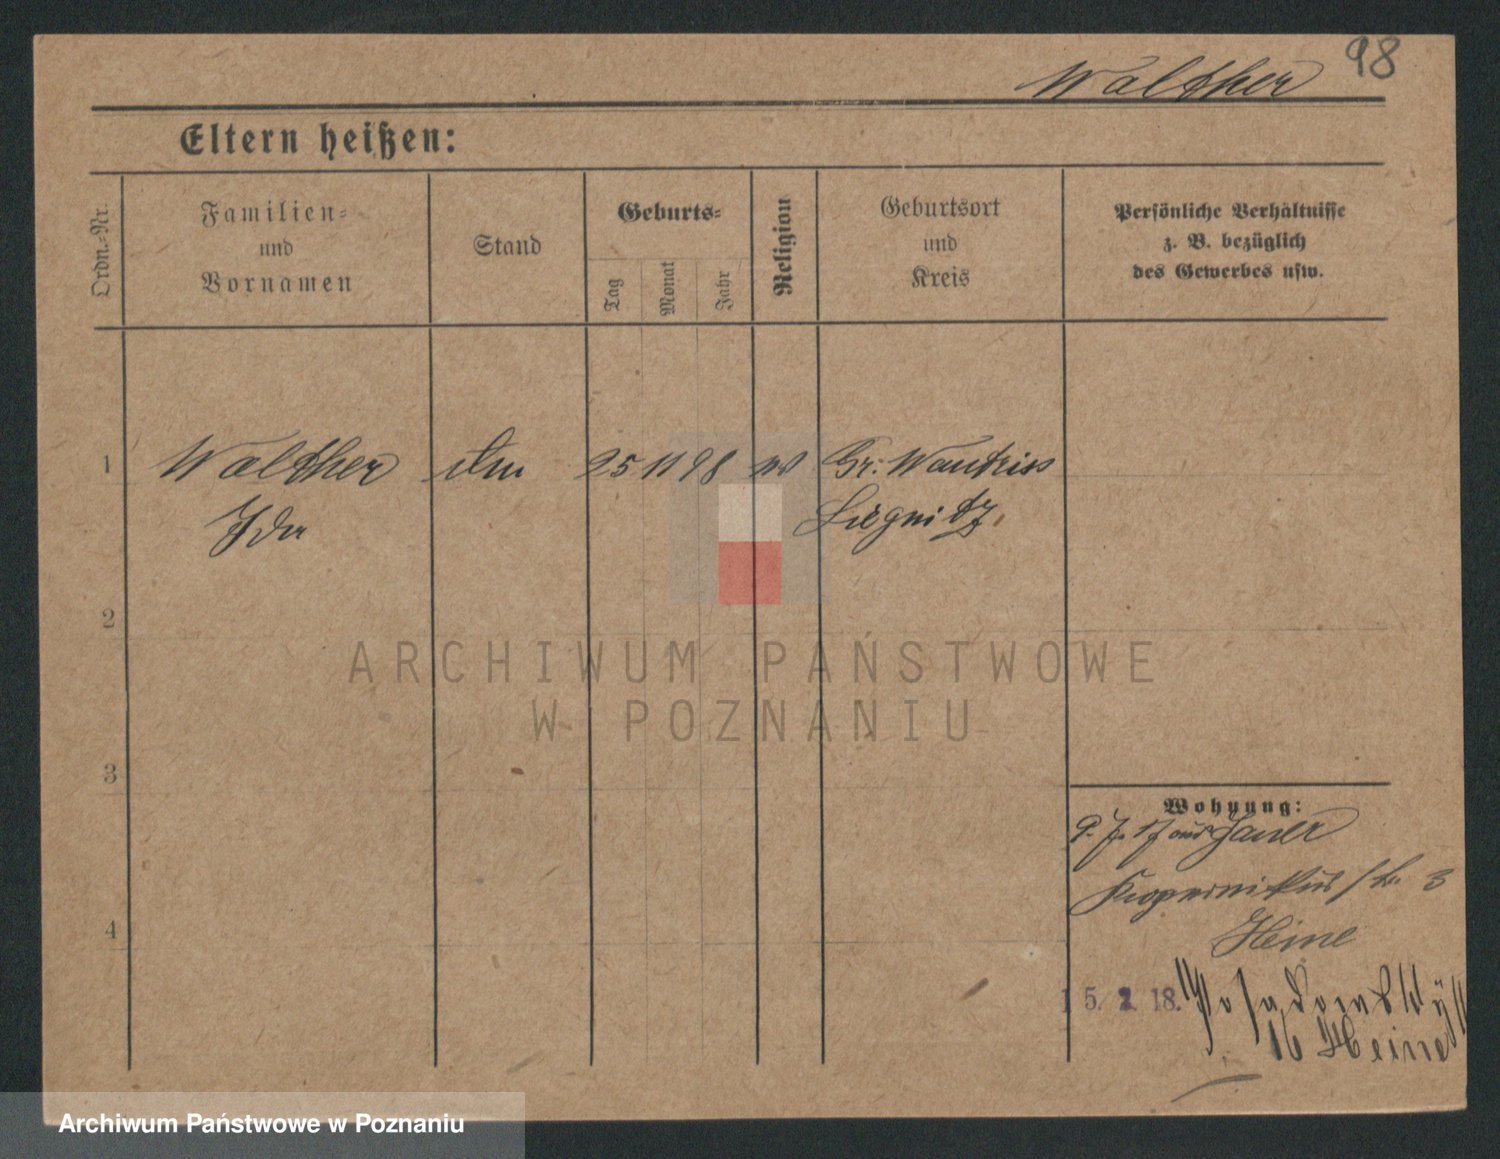 98
Walther
Eltern heißen:
Ordn.-Nr.
Familien-
und
Vornamen
Stand
Geburts-
Tag
Monat
Jahr
Religion
Geburtsort
und
Kreis
Persönliche Verhältnisse
z. B. bezüglich
des Gewerbes usw.
1 Walther 25 11 98 Gr. Wandriss
Ida Liegnitz
2
3
4
Wohnung:
17 aus Jauer
Kopernikusstr. 3
Heine
15. 2. 18.
16 Heine
ARCHIWUM PAŃSTWOWE
W POZNANIU
Archiwum Państwowe w Poznaniu